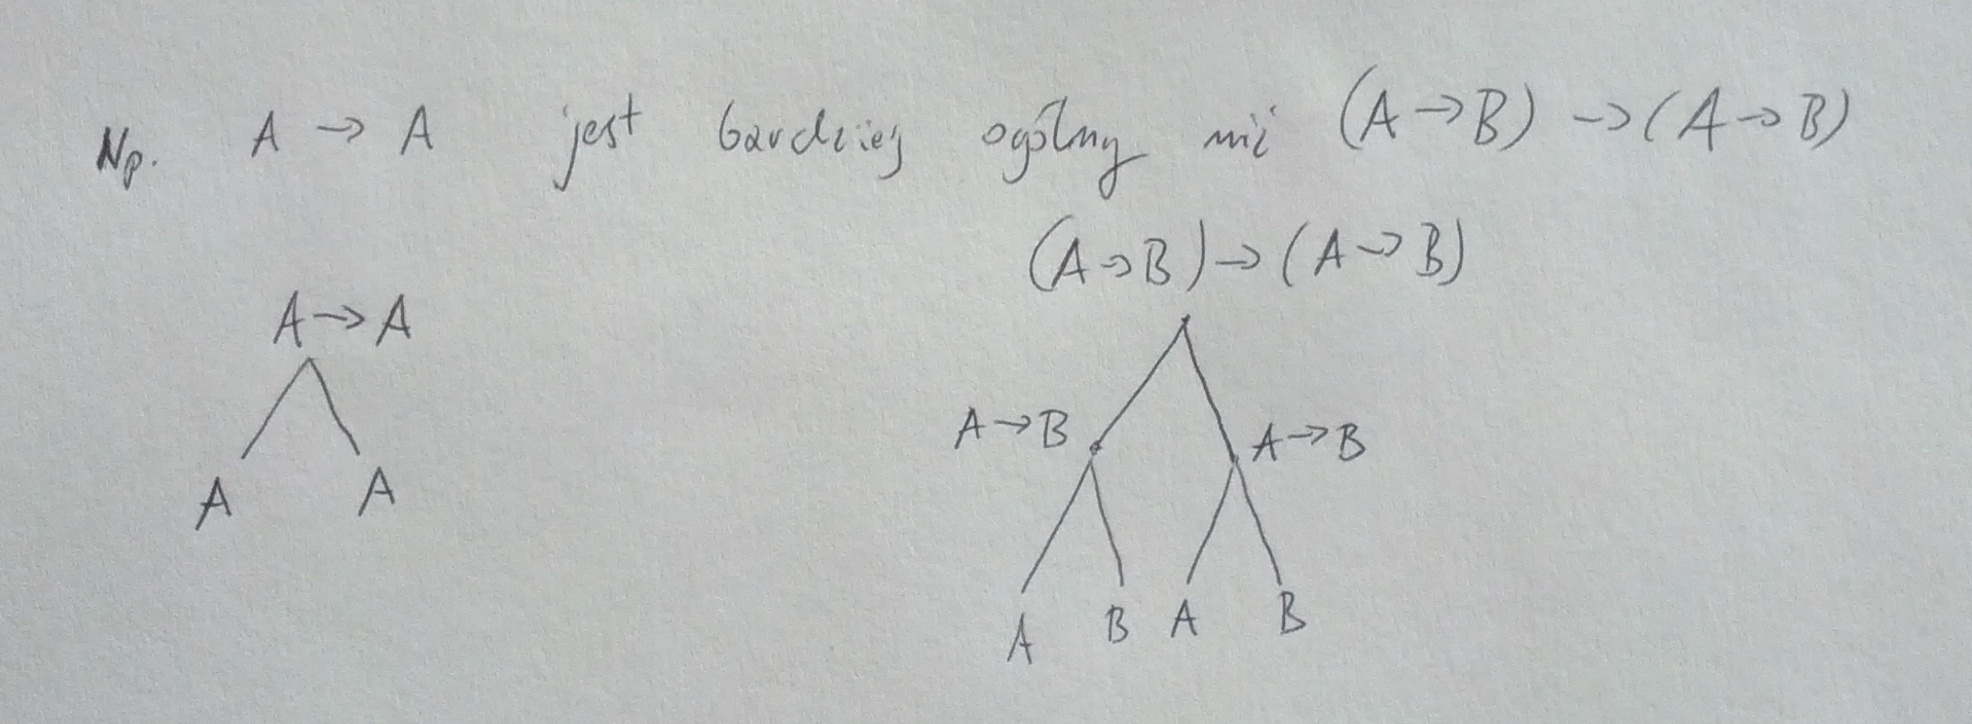 Np. A → A jest bardziej ogólny niż (A → B) → (A → B)
(A → B) → (A → B)
A → A
A → B A → B
A A
A B A B